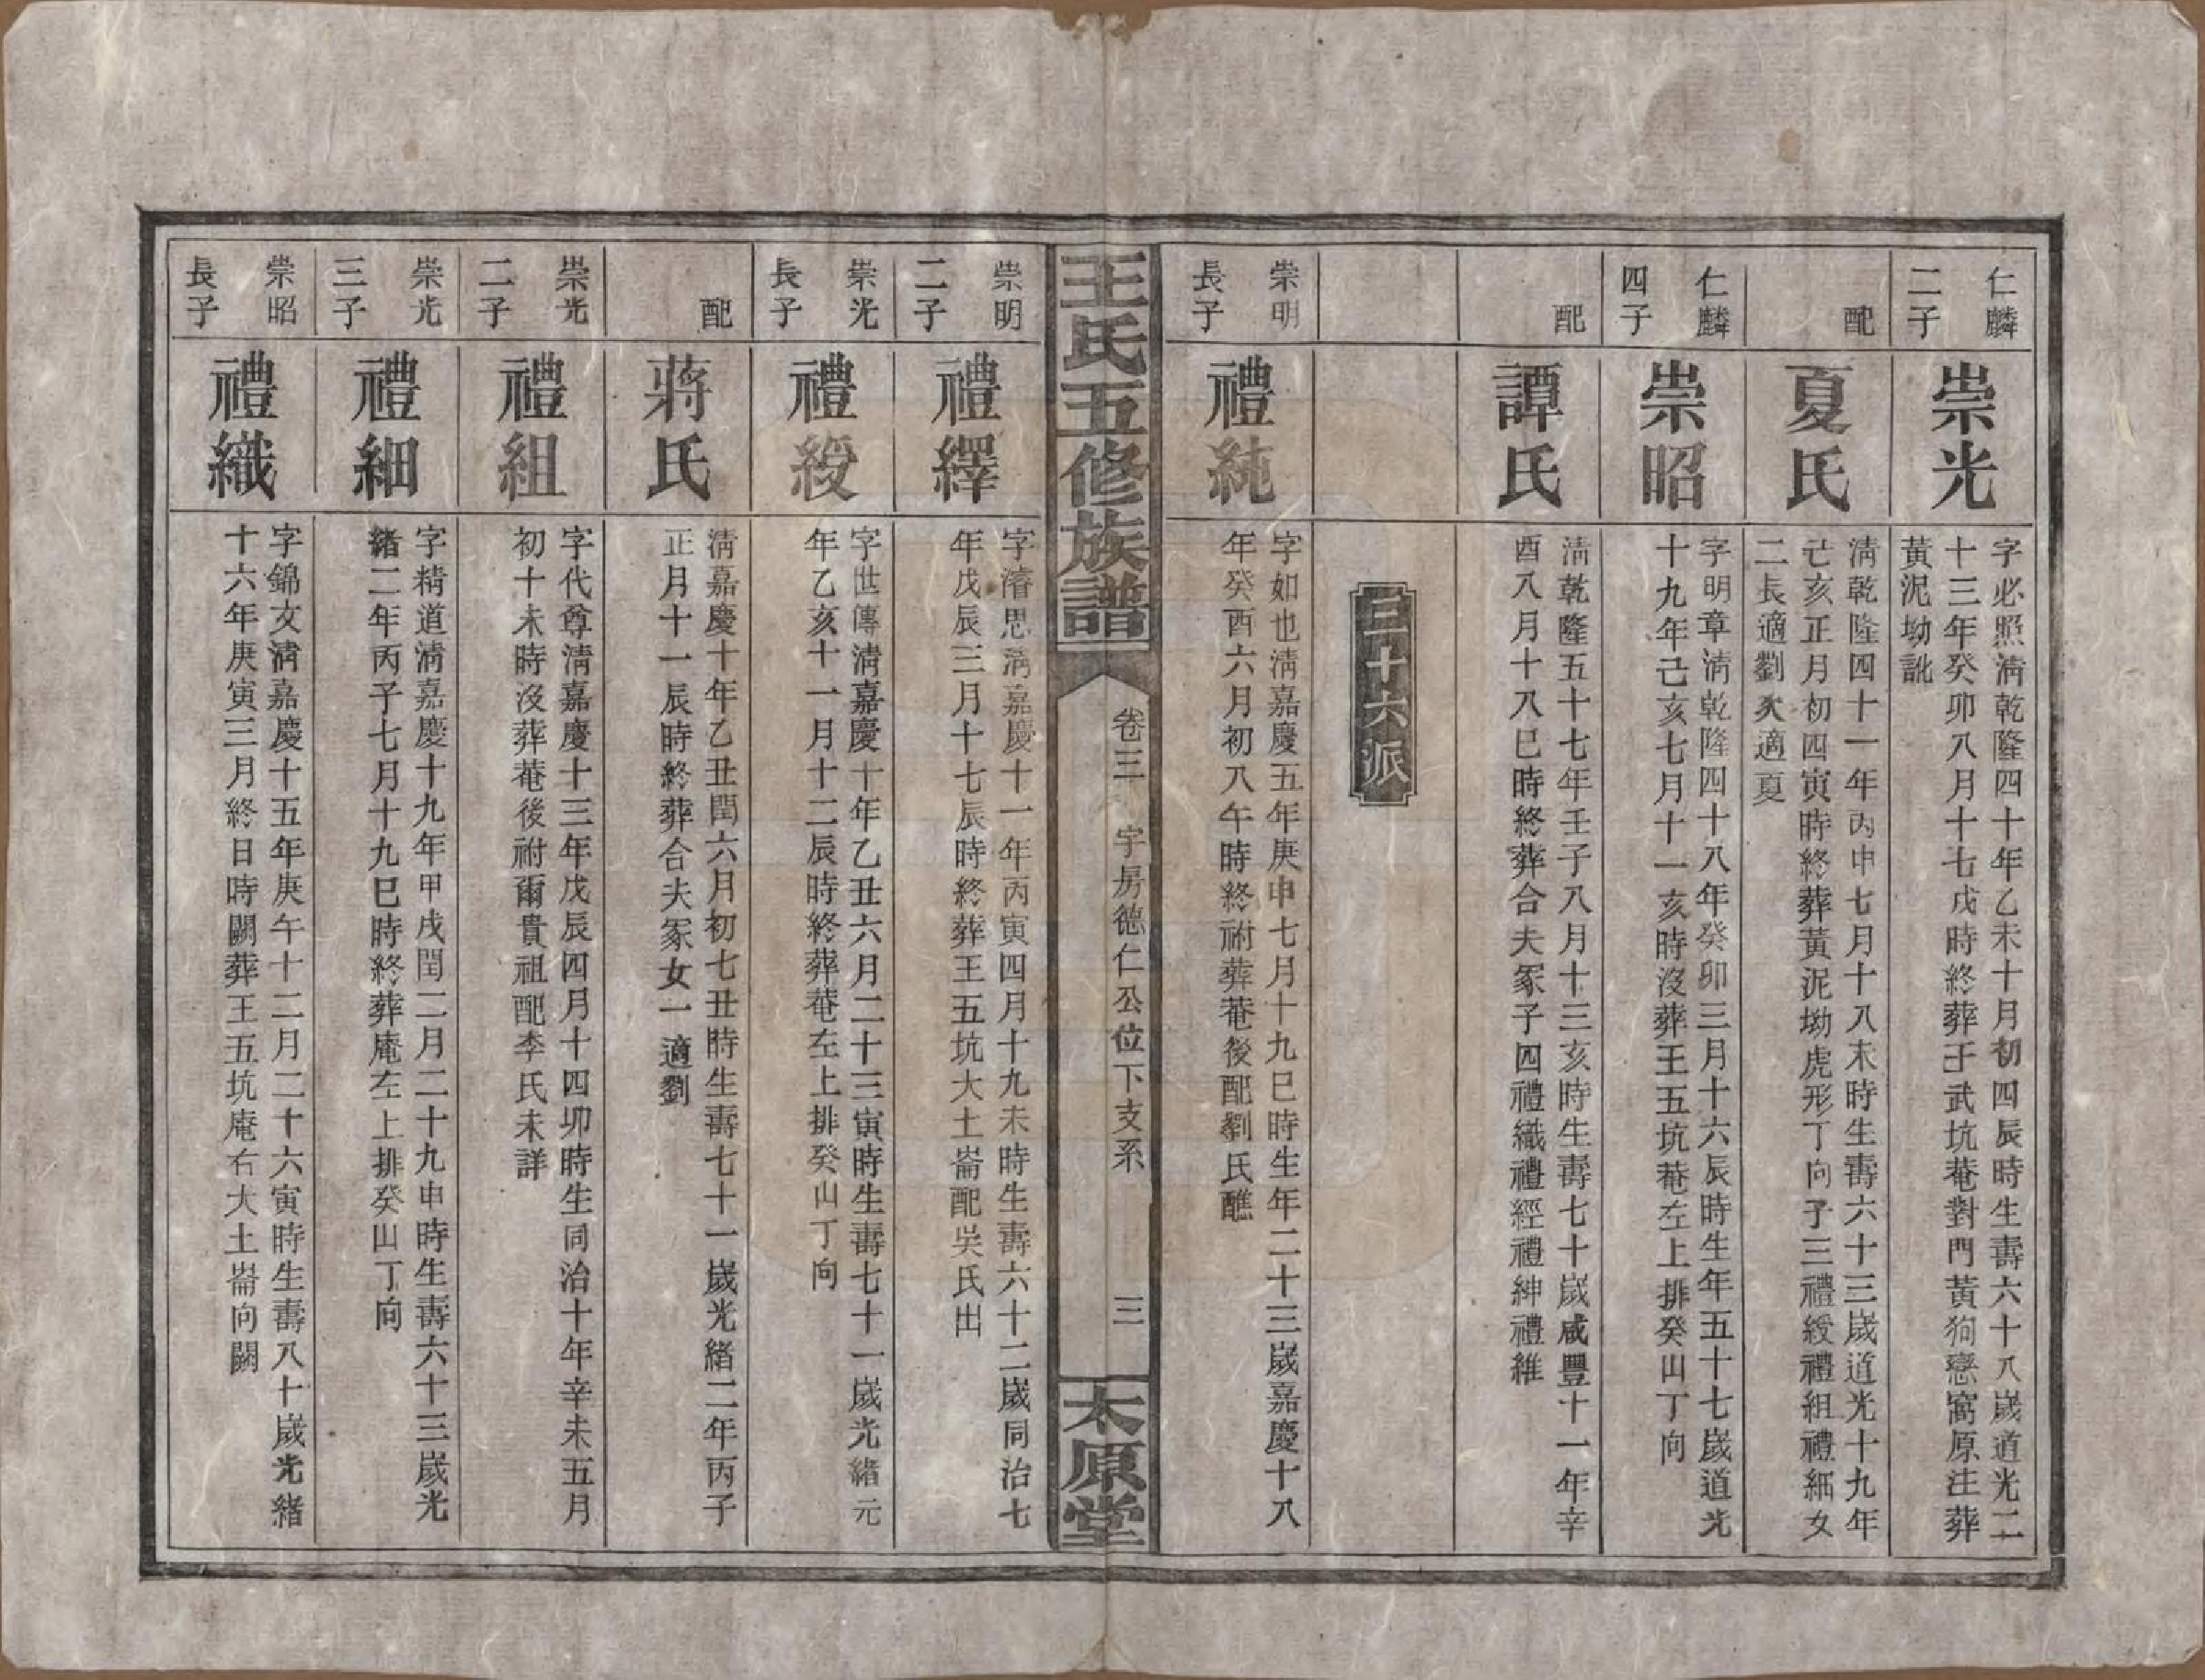 仁麟
二子
崇光
字必照清乾隆四十年乙未十月初四辰時生壽六十八歲道光二
十三年癸卯八月十七戌時終葬于武坑菴對門黃狗戀窩原注葬
黃泥坳訛
配
夏氏
清乾隆四十一年丙申七月十八未時生壽六十三歲道光十九年
己亥正月初四寅時終葬黃泥坳虎形丁向子三禮綬禮組禮細女
二長適劉次適夏
仁麟
四子
崇昭
字明章清乾隆四十八年癸卯三月十六辰時生年五十七歲道光
十九年己亥七月十一亥時沒葬王五坑菴左上排癸山丁向
配
譚氏
清乾隆五十七年壬子八月十三亥時生壽七十歲咸豐十一年辛
酉八月十八巳時終葬合夫冢子四禮織禮經禮紳禮維
三十六派
崇明
長子
禮純
字如也清嘉慶五年庚申七月十九巳時生年二十三歲嘉慶十八
年癸酉六月初八午時終祔葬菴後配劉氏醮
王氏五修族譜
卷三
字房德仁公位下支系
三
太原堂
崇明
二子
禮繹
字濬思清嘉慶十一年丙寅四月十九未時生壽六十二歲同治七
年戊辰三月十七辰時終葬王五坑大土崙配吳氏出
崇光
長子
禮綬
字世傳清嘉慶十年乙丑六月二十三寅時生壽七十一歲光緒元
年乙亥十一月十二辰時終葬菴左上排癸山丁向
配
蔣氏
清嘉慶十年乙丑閏六月初七丑時生壽七十一歲光緒二年丙子
正月十一辰時終葬合夫冢女一適劉
崇光
二子
禮組
字代尊清嘉慶十三年戊辰四月十四卯時生同治十年辛未五月
初十未時沒葬菴後祔爾貴祖配李氏未詳
崇光
三子
禮細
字精道清嘉慶十九年甲戌閏二月二十九申時生壽六十三歲光
緒二年丙子七月十九巳時終葬庵左上排癸山丁向
崇昭
長子
禮織
字錦文清嘉慶十五年庚午十二月二十六寅時生壽八十歲光緒
十六年庚寅三月終日時闕葬王五坑庵右大土崙向闕